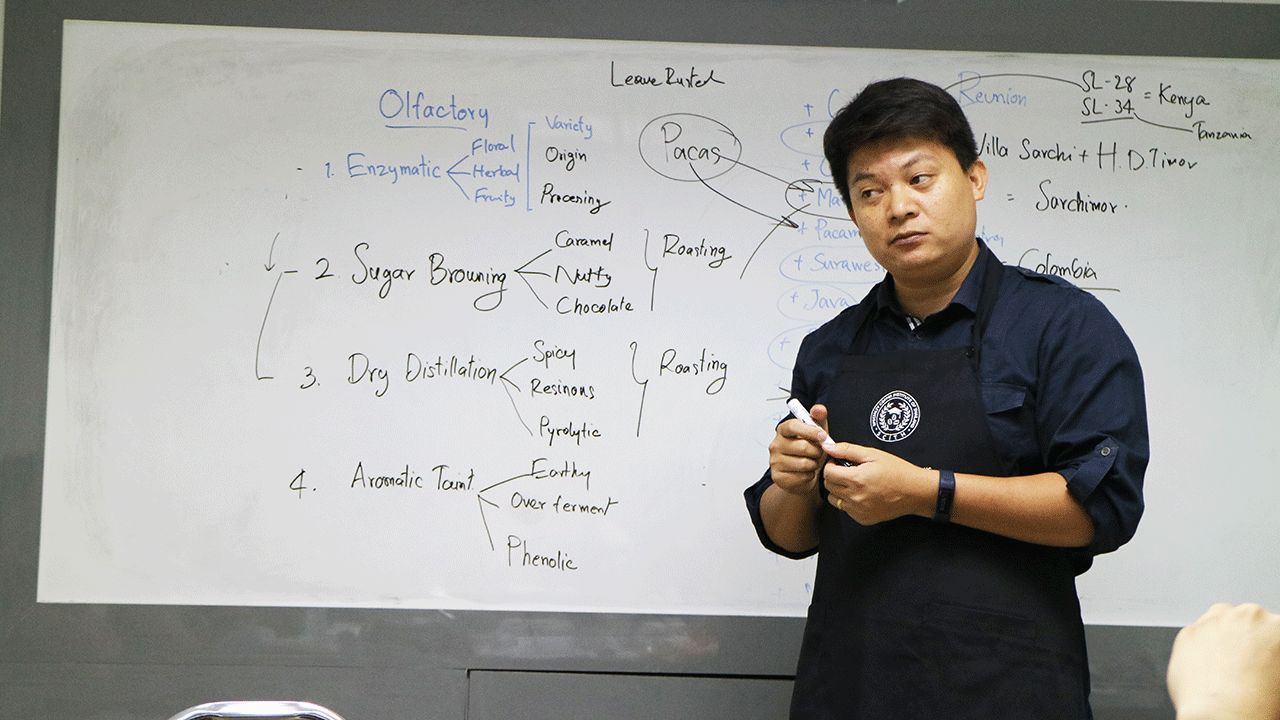 Leave Rusted
Olfactory
1. Enzymatic
Floral
Herbal
Fruity
Variety
Origin
Processing
2. Sugar Browning
Caramel
Nutty
Chocolate
Roasting
3. Dry Distillation
Spicy
Resinous
Pyrolytic
Roasting
4. Aromatic Taint
Earthy
Over ferment
Phenolic
Pacas
+
+
+
+ Ma
+ Pacam
+ Surawes
+ Java
+
Reunion
SL-28
SL-34
= Kenya
Tanzania
Villa Sarchi + H.D.Timor
= Sarchimor.
Colombia
SCITH